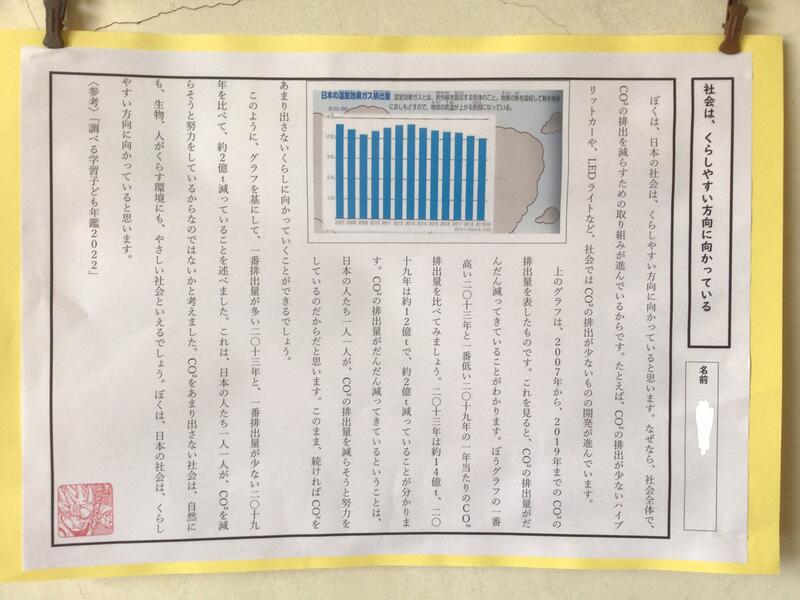 社会は、くらしやすい方向に向かっている
名前
ぼくは、日本の社会は、くらしやすい方向に向かっていると思います。なぜなら、社会全体で、
CO²の排出を減らすための取り組みが進んでいるからです。たとえば、CO²の排出が少ないハイブ
リットカーや、LEDライトなど、社会ではCO²の排出が少ないものの開発が進んでいます。
日本の温室効果ガス排出量
温室効果ガスとは、赤外線を吸収する気体のこと。地表の熱を吸収して熱を地表
におしもどすので、地球の気温が上がる原因になっている。
2007 2008 2009 2010 2011 2012 2013 2014 2015 2016 2017 2018 2019
上のグラフは、2007年から、2019年までのCO²の
排出量を表したものです。これを見ると、CO²の排出量がだ
んだん減ってきていることがわかります。ぼうグラフの一番
高い二〇十三年と一番低い二〇十九年の一年当たりのCO²
排出量を比べてみましょう。二〇十三年は約14億t、二〇
十九年は約12億tで、約2億t減っていることが分かりま
す。CO²の排出量がだんだん減ってきているということは、
日本の人たち一人一人が、CO²の排出量を減らそうと努力を
しているのだからだと思います。このまま、続ければCO²を
あまり出さないくらしに向かっていくことができるでしょう。
このように、グラフを基にして、一番排出量が多い二〇十三年と、一番排出量が少ない二〇十九
年を比べて、約2億t減っていることを述べました。これは、日本の人たち一人一人が、CO²を減
らそうと努力をしているからなのではないかと考えました。CO²をあまり出さない社会は、自然に
も、生物、人がくらす環境にも、やさしい社会といえるでしょう。ぼくは、日本の社会は、くらし
やすい方向に向かっていると思います。
〈参考〉「調べる学習子ども年鑑2022」